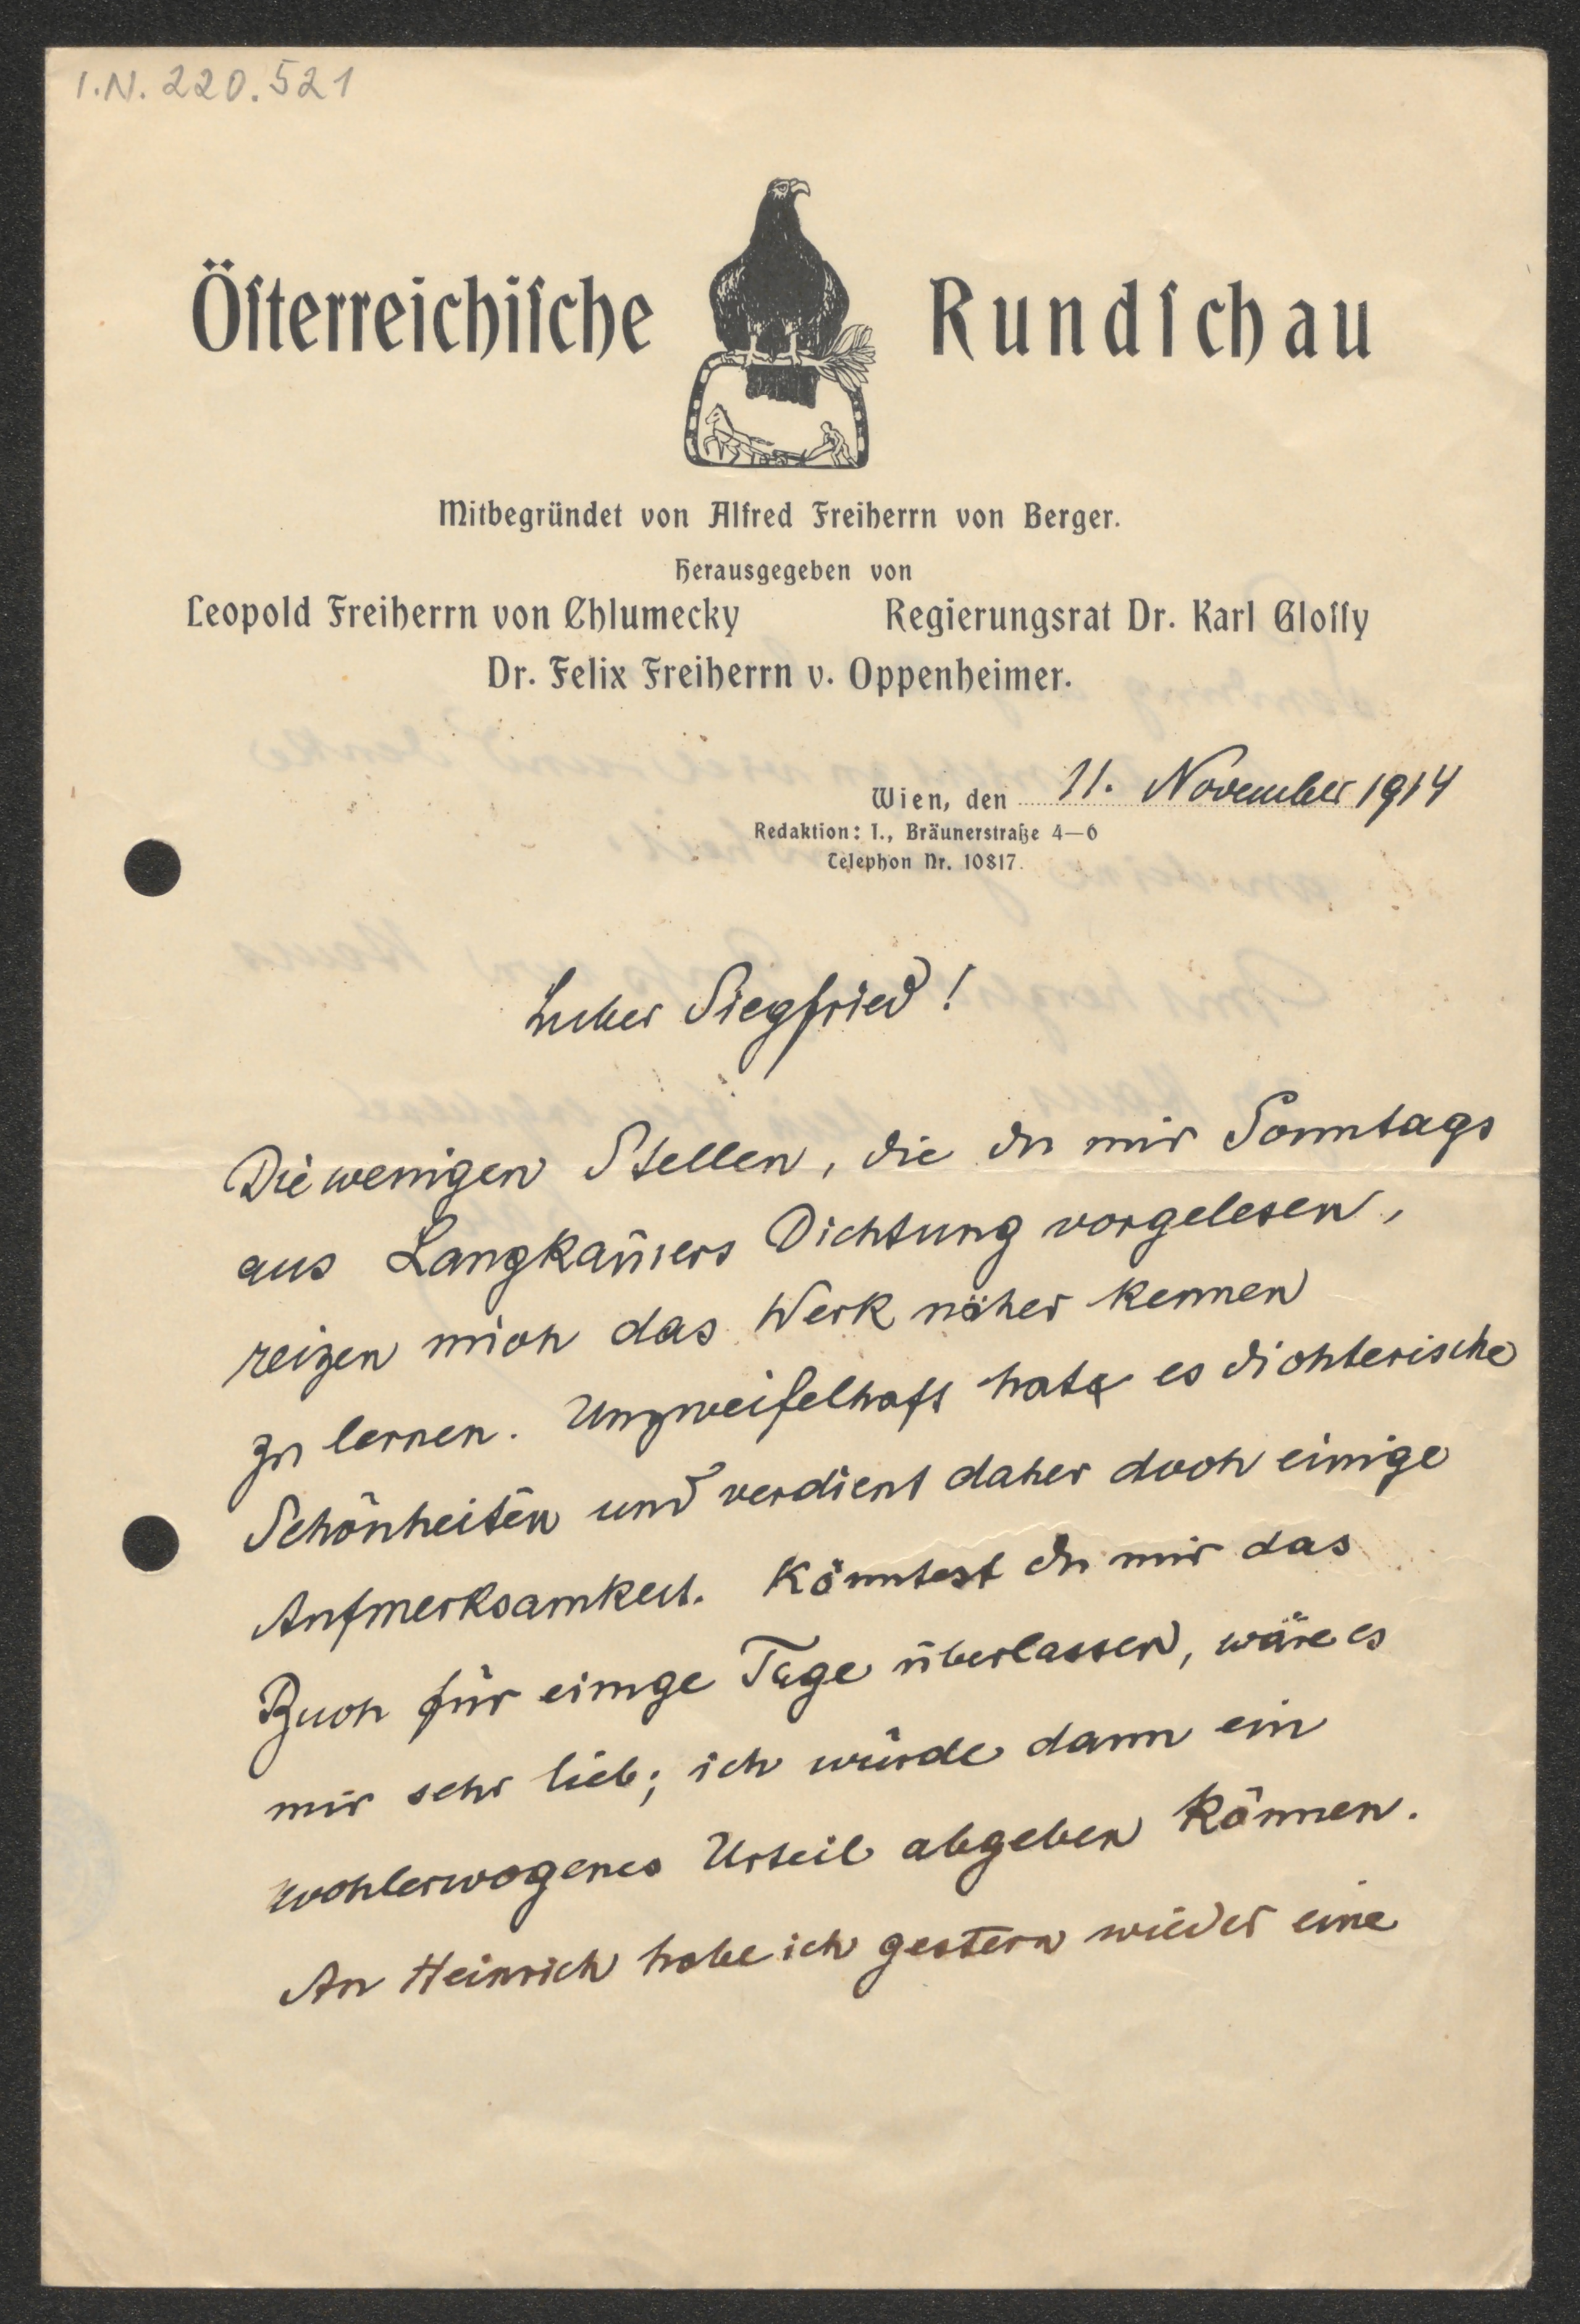 I.N. 220.521
Öſterreichiſche Rundſchau
Mitbegründet von Alfred Freiherrn von Berger.
Herausgegeben von
Leopold Freiherrn von Chlumecky Regierungsrat Dr. Karl Gloſſy
Dr. Felix Freiherrn v. Oppenheimer.
Wien, den 11. November 1914
Redaktion: I., Bräunerstraße 4—6
Telephon Nr. 10817.
Lieber Siegfried!
Die wenigen Stellen, die du mir Sonntags
aus Langkam̄ers Dichtung vorgelesen,
reizen mich das Werk näher kennen
zu lernen. Unzweifelhaft hat es dichterische
Schönheiten und verdient daher doch einige
Aufmerksamkeit. Könntest du mir das
Buch für einige Tage überlassen, wäre es
mir sehr lieb; ich würde dann ein
wohlerwogenes Urteil abgeben können.
An Heinrich habe ich gestern wieder eine